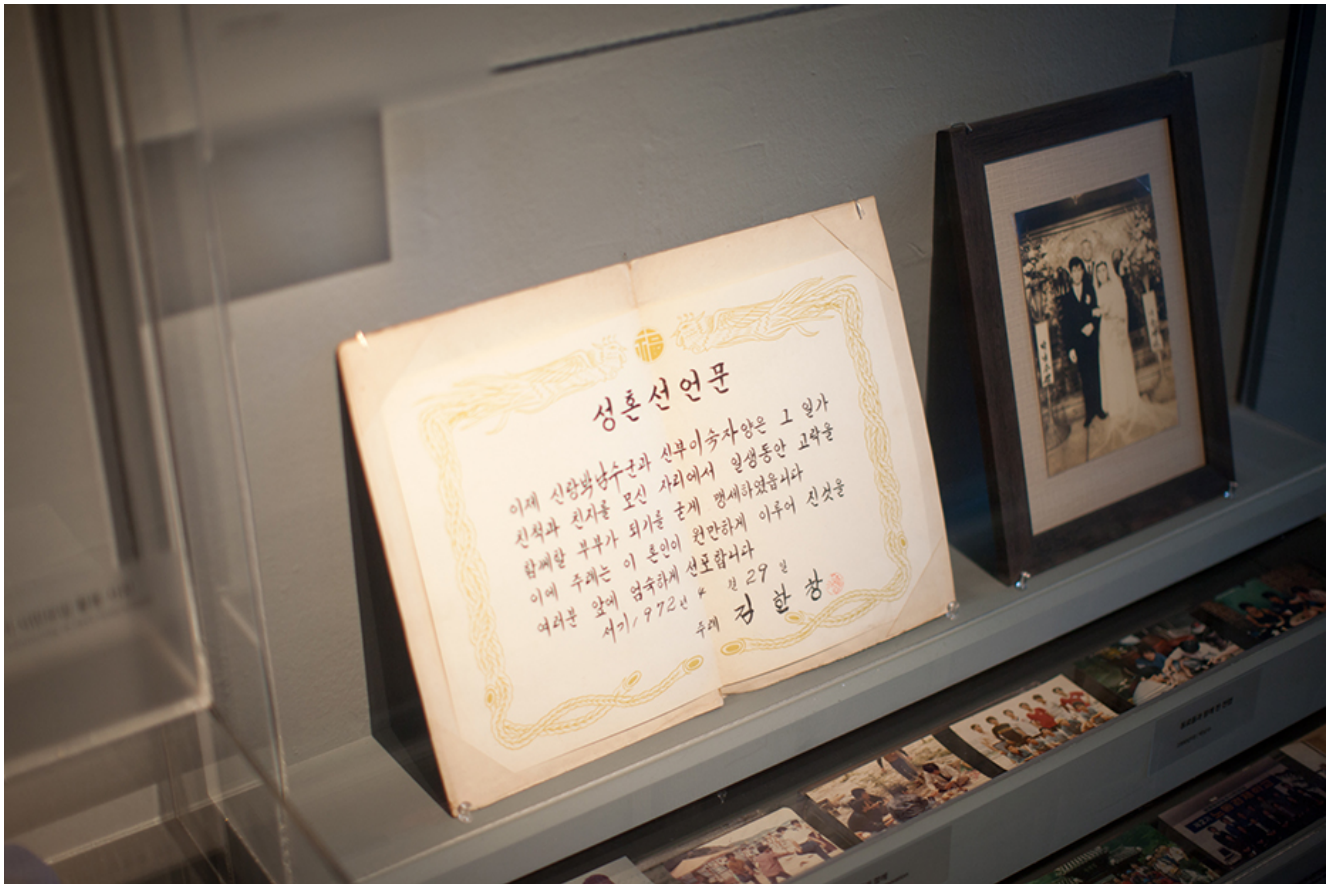 성혼선언문
이제 신랑박남수군과 신부이숙자양은 그 일가
친척과 친지를 모신 자리에서 일생동안 고락을
함께할 부부가 되기를 굳게 맹세하였읍니다
이에 주례는 이 혼인이 원만하게 이루어 진것을
여러분 앞에 엄숙하게 선포합니다
서기 1972년 4월 29일
주례 김한창